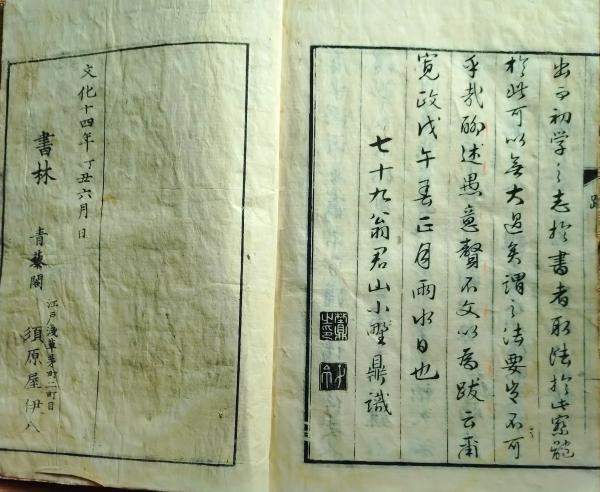 跋
出而初学之志於書者取法於此能
於此可以無大過矣謂之法要豈不可
乎哉聊述愚意不文以為跋云爾
寛政戊午春正月雨水日也
七十九翁君山小野鼎識
埜鼎之印
文化十四年丁丑六月日
江戸淺草茅町二町目
書林 青藜閣 須原屋伊八